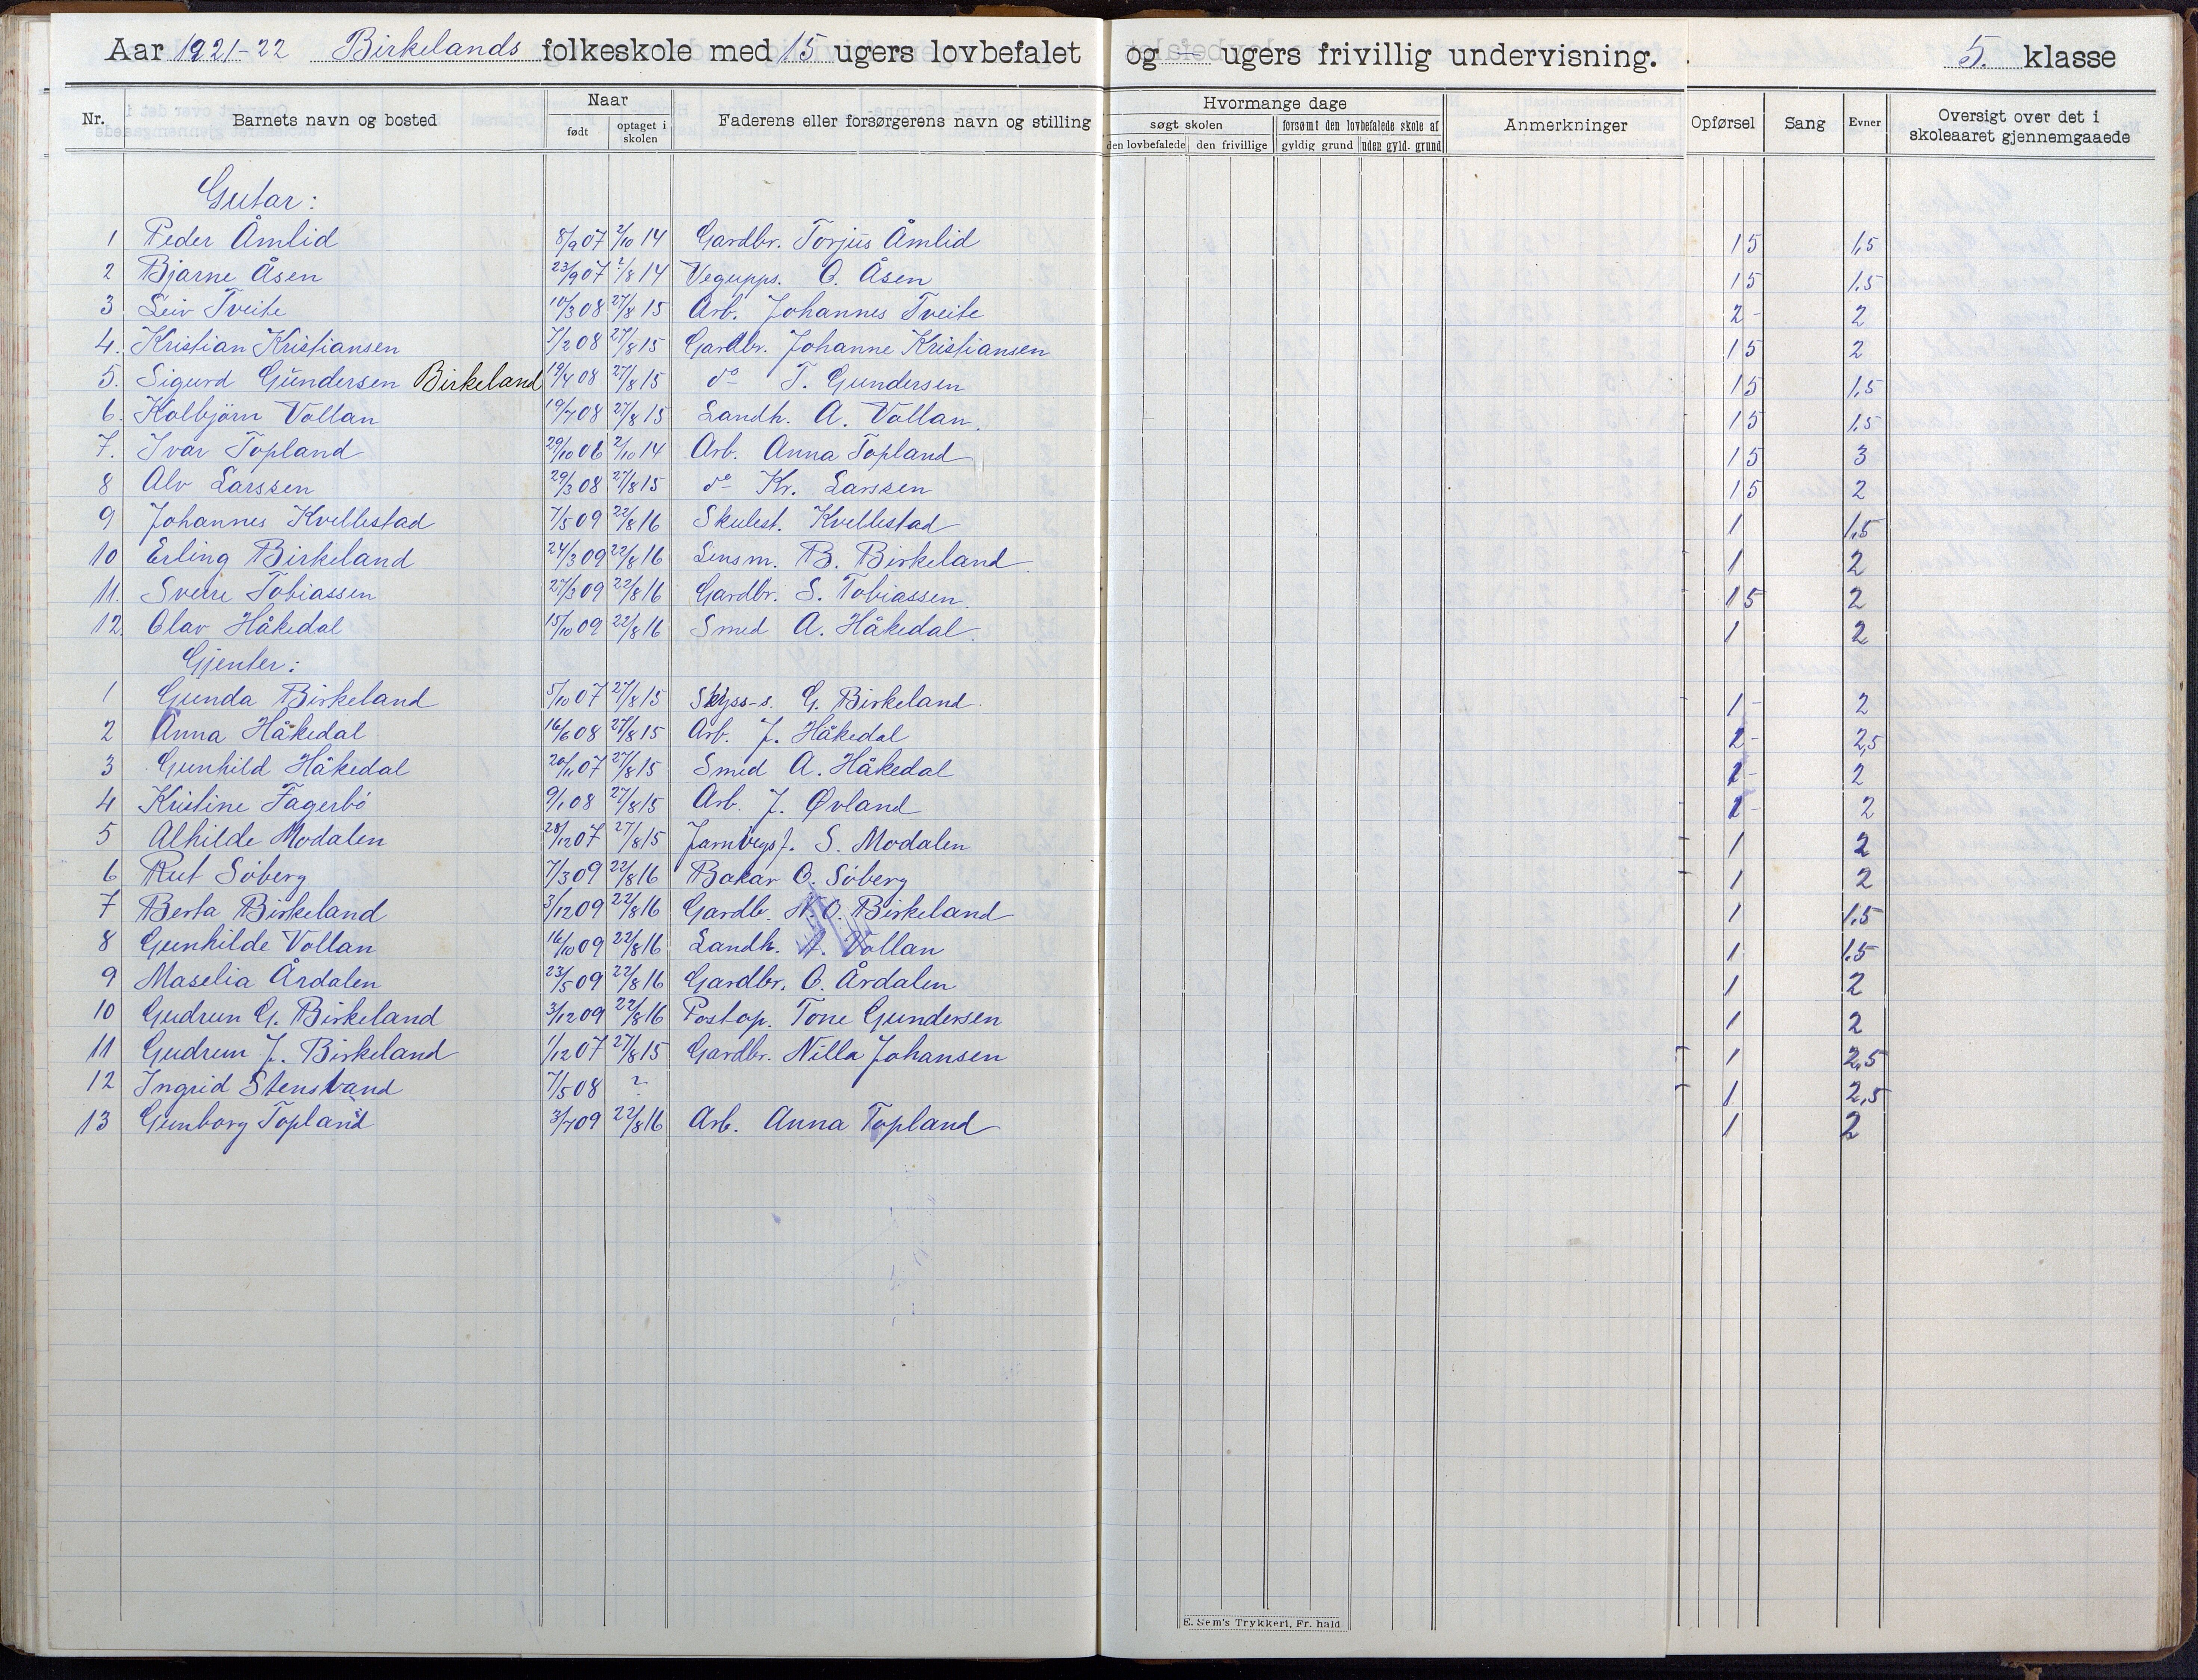 Aar 1921-22 Birkelands folkeskole med 15 ugers lovbefalet og — ugers frivillig undervisning. 5. klasse
Nr. Barnets navn og bosted Naar født optaget i skolen Faderens eller forsørgerens navn og stilling Hvormange dage søgt skolen den lovbefalede den frivillige forsømt den lovbefalede skole af gyldig grund uden gyld. grund Anmerkninger Opførsel Sang Evner Oversigt over det i skoleaaret gjennemgaaede
Gutar:
1 Peder Åmlid 8/9 07 2/10 14 Gardbr. Torjus Åmlid 15 1,5
2 Bjarne Åsen 23/9 07 /8 14 Vegupps. O. Åsen 15 1,5
3 Leiv Tveite 10/3 08 27/8 15 Arb. Johannes Tveite 2- 2
4. Kristian Kristiansen 7/2 08 27/8 15 Gardbr. Johanne Kristiansen 15 2
5. Sigurd Gundersen Birkeland 19/4 08 27/8 15 do T. Gundersen 15 1,5
6. Kolbjörn Vollan 19/7 08 27/8 15 Landh. A. Vollan. 15 1,5
7. Ivar Topland 29/10 06 2/10 14 Arb. Anna Topland 15 3
8 Alv Larssen 29/3 08 27/8 15 do Kr. Larssen 15 2
9 Johannes Kvellestad 7/5 09 22/8 16 Skulest. Kvellestad 1 1,5
10 Erling Birkeland 24/3 09 22/8 16 Lensm. B. Birkeland 1 2
11. Sverre Tobiassen 27/3 09 22/8 16 Gardbr. S. Tobiassen. 15 2
12. Olav Håkedal 15/10 09 22/8 16 Smed A. Håkedal. 1 2
Gjenter:
1 Gunda Birkeland 5/10 07 27/8 15 Skyss-s. G. Birkeland. 1- 2
2 Anna Håkedal 16/6 08 27/8 15 Arb. J. Håkedal 2- 2,5
3 Gunhild Håkedal 20/11 07 27/8 15 Smed A. Håkedal 2- 2
4 Kristine Fagerbö 9/1 08 27/8 15 Arb. J. Øvland 1- 2
5 Alhilde Modalen 28/12 07 27/8 15 Jarnvegsf. S. Modalen 1 2
6 Rut Söberg 7/3 09 22/8 16 Bakar O. Söberg 1 2
7 Berta Birkeland 3/12 09 22/8 16 Gardb. N. O. Birkeland 1 1,5
8 Gunhilde Vollan 16/10 09 22/8 16 Landh. A. Vollan 1 1.5
9 Maselia Årdalen 23/5 09 22/8 16 Gardbr. O. Årdalen 1 2
10 Gudrun G. Birkeland 3/12 09 22/8 16 Postop. Tone Gundersen 1 2
11 Gudrun J. Birkeland 1/12 07 27/8 15 Gardbr. Nilla Johansen 1 2,5
12 Ingrid Stensland 7/5 08 ? 1 2,5
13 Gunborg Topland 3/7 09 22/8 16 Arb. Anna Topland 1 2
E. Sem's Trykkeri, Fr. hald